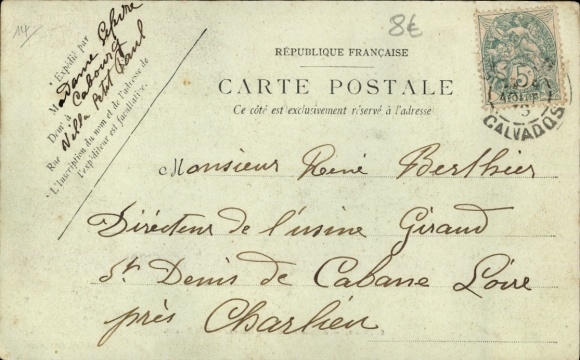 14
8€
Expédié par
Madame Lefèvre
Demt à Cabourg
Rue Villa Petit Paul
L'Inscription du nom et de l'adresse de
l'expéditeur est facultative.
RÉPUBLIQUE FRANÇAISE
CARTE POSTALE
Ce côté est exclusivement réservé à l'adresse
5
CALVADOS
Monsieur René Berthier
Directeur de l'usine Giraud
St Denis de Cabane Loire
près Charlieu